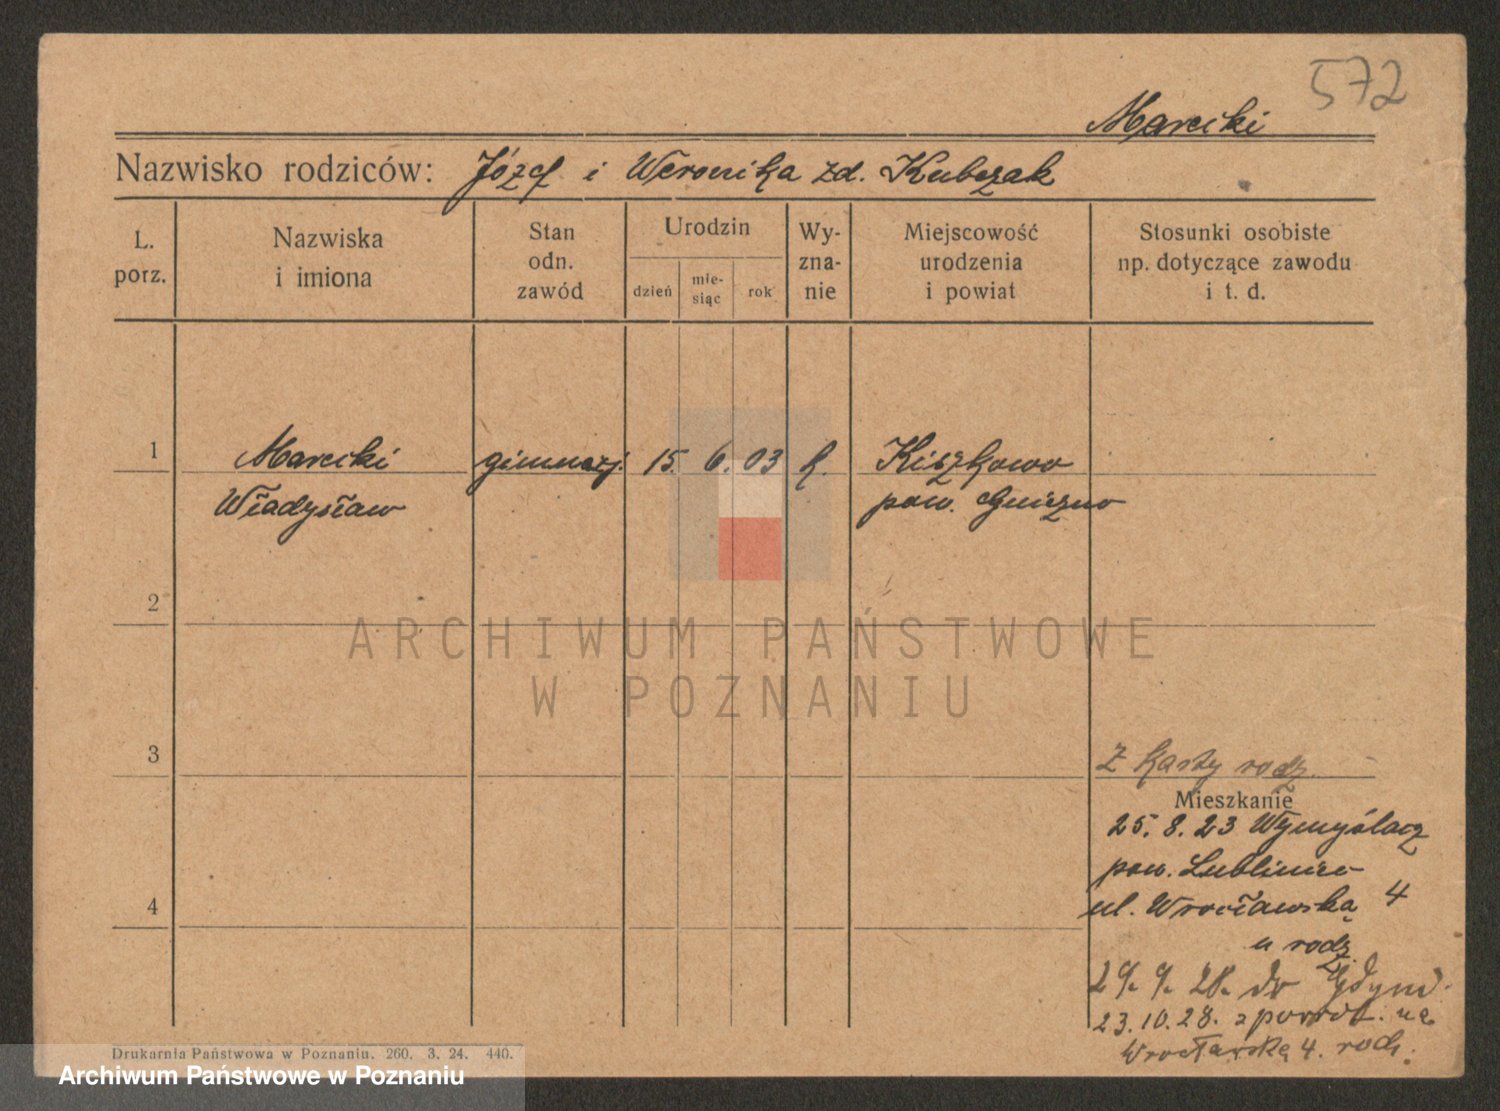 572
Marecki
Nazwisko rodziców: Józef i Weronika zd. Kubczak
L. porz.
Nazwiska i imiona
Stan odn. zawód
Urodzin
dzień
mie-siąc
rok
Wy-zna-nie
Miejscowość urodzenia i powiat
Stosunki osobiste np. dotyczące zawodu i t. d.
1 Marecki gimnazj. 15. 6. 03 k. Kiszkowo
Władysław pow. Gniezno
2
ARCHIWUM PAŃSTWOWE
W POZNANIU
3
Z karty rodz.
Mieszkanie
25. 8. 23 Wymyślacz
pow. Lubliniec
4
ul. Wrocławska 4
u rodz.
29. 9. 28. do Gdyni.
23. 10. 28. z powrot. na
Wrocławską 4. rodz.
Drukarnia Państwowa w Poznaniu. 260. 3. 24. 440.
Archiwum Państwowe w Poznaniu